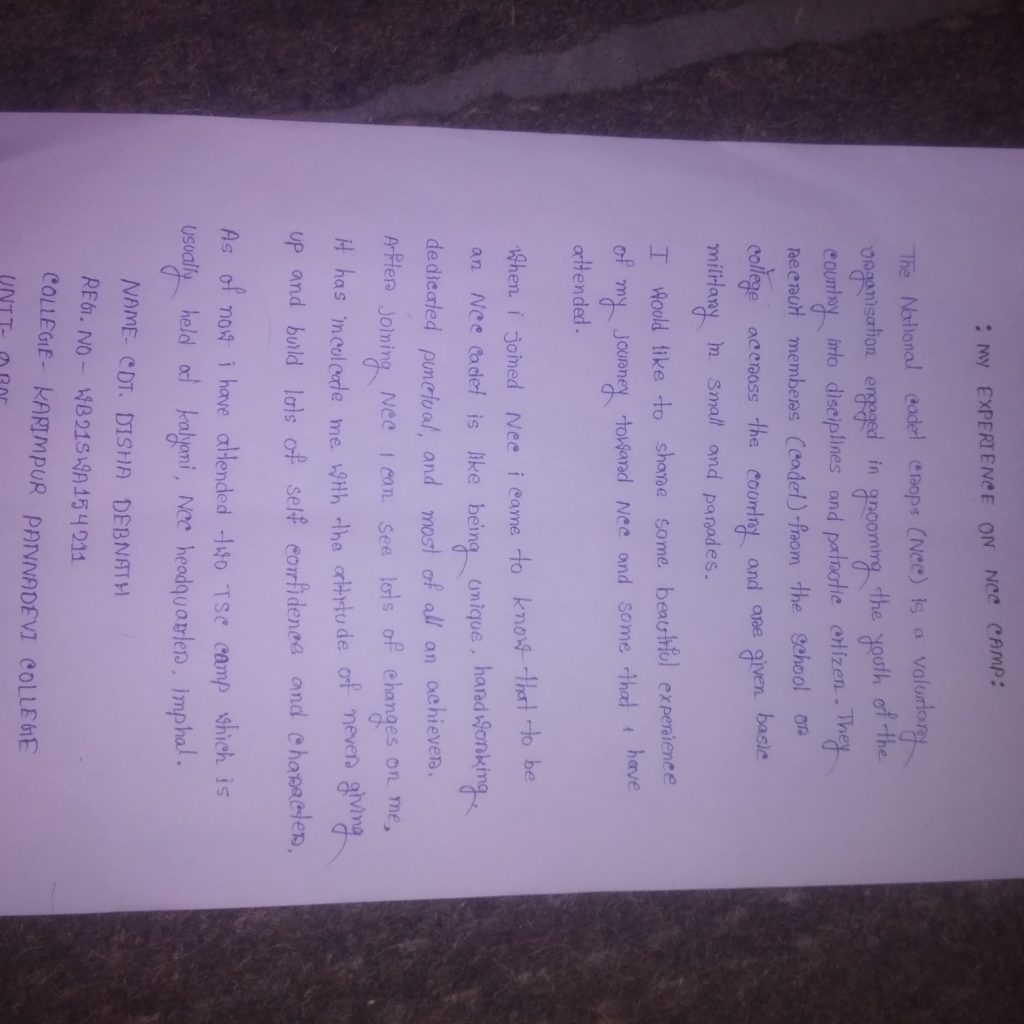 : MY EXPERIENCE ON NCC CAMP:
The National cadet croops (NCC) is a voluntary
organisation engaged in grooming the youth of the
country into disciplines and patriotic citizen. They
recruit members (cadet) from the school or
college accross the country and are given basic
military in small and parades.
I would like to share some beautiful experience
of my journey toward NCC and some that i have
attended.
When i joined NCC i came to know that to be
an NCC cadet is like being unique, hardworking,
dedicated punctual, and most of all an achiever.
After joining NCC i can see lots of changes on me,
it has inculcate me with the attitude of never giving
up and build lots of self confidence and character.
As of now i have attended two TSC camp which is
usually held at kalyani, NCC headquarter, imphal.
NAME- CDT. DISHA DEBNATH
REG. NO - WB21SWA154211
COLLEGE - KARIMPUR PANNADEVI COLLEGE
UNIT-